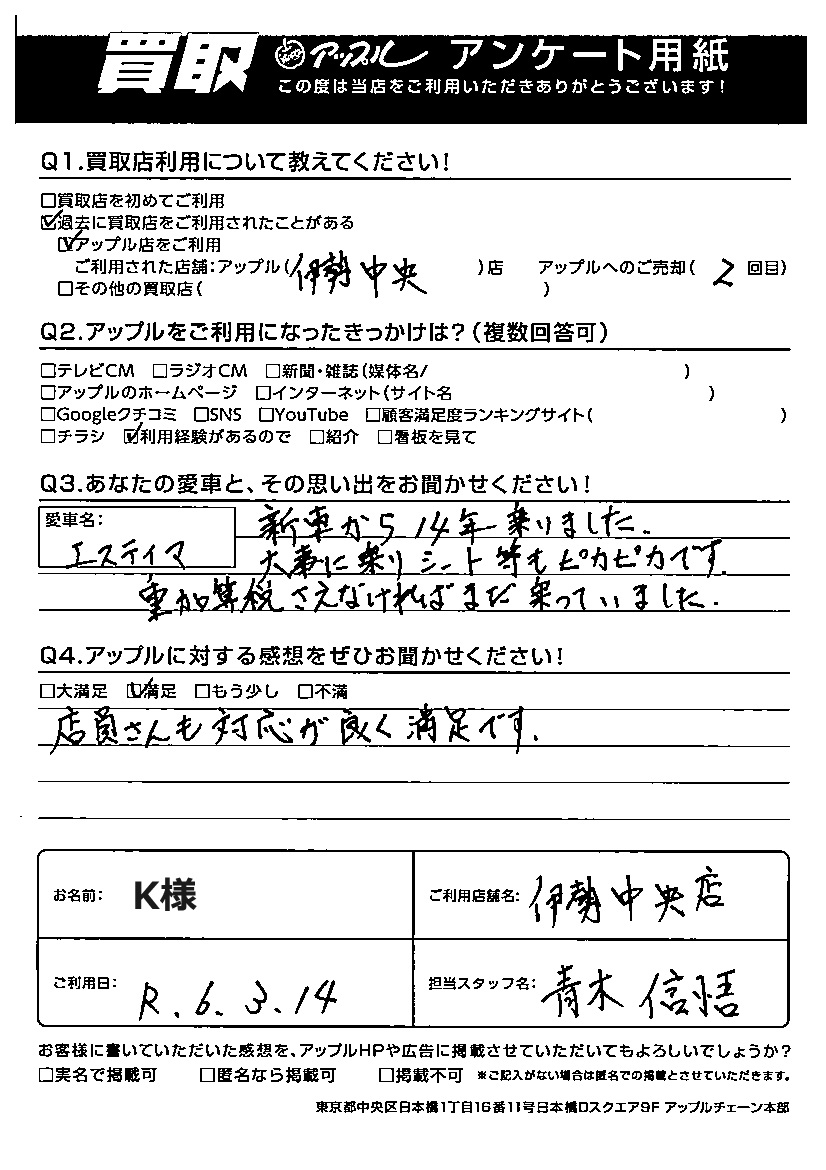 買取 アップル アンケート用紙
この度は当店をご利用いただきありがとうございます!
Q1.買取店利用について教えてください!
□買取店を初めてご利用
☑過去に買取店をご利用されたことがある
☑アップル店をご利用
ご利用された店舗:アップル(伊勢中央)店 アップルへのご売却(2回目)
□その他の買取店( )
Q2.アップルをご利用になったきっかけは?(複数回答可)
□テレビCM □ラジオCM □新聞・雑誌(媒体名/ )
□アップルのホームページ □インターネット(サイト名 )
□Googleクチコミ □SNS □YouTube □顧客満足度ランキングサイト( )
□チラシ ☑利用経験があるので □紹介 □看板を見て
Q3.あなたの愛車と、その思い出をお聞かせください!
愛車名:
エスティマ
新車から14年乗りました.
大事に乗りシート等もピカピカです.
重加算税さえなければまだ乗っていました.
Q4.アップルに対する感想をぜひお聞かせください!
□大満足 ☑満足 □もう少し □不満
店員さんも対応が良く満足です.
お名前: K様
ご利用店舗名: 伊勢中央店
ご利用日: R.6.3.14
担当スタッフ名: 青木 信悟
お客様に書いていただいた感想を、アップルHPや広告に掲載させていただいてもよろしいでしょうか?
□実名で掲載可 □匿名なら掲載可 □掲載不可 ※ご記入がない場合は匿名での掲載とさせていただきます。
東京都中央区日本橋1丁目16番11号日本橋Dスクエア9F アップルチェーン本部